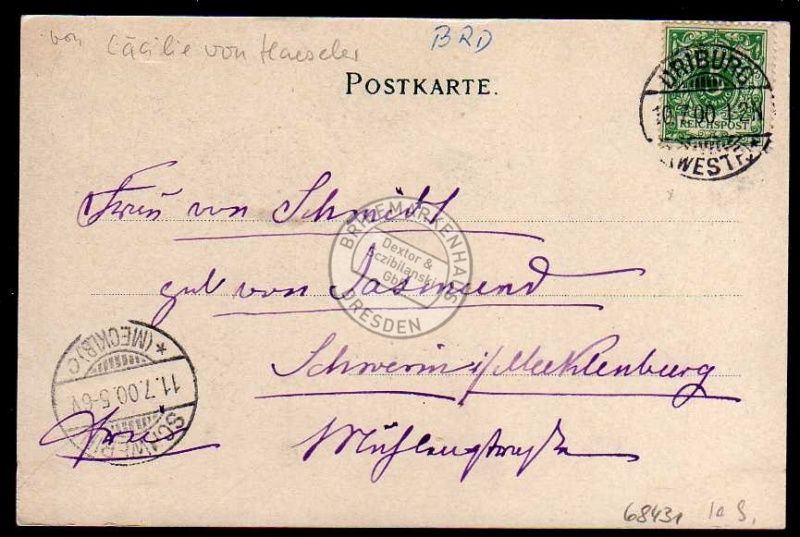 von Cäcilie von Haeseler
BRD
POSTKARTE.
DRIBURG
10.7.00 1-2N
REICHSPOST
(WESTF.)
Frau von Schmidt
BRIEFMARKENHAUS
Dextor &
Sczibilanski
GbR
DRESDEN
geb von Jasmund
Schwerin i/Mecklenburg
SCHWERIN
* (MECKLB) C
11.7.00.5-6V.
Mühlenstraße
68431